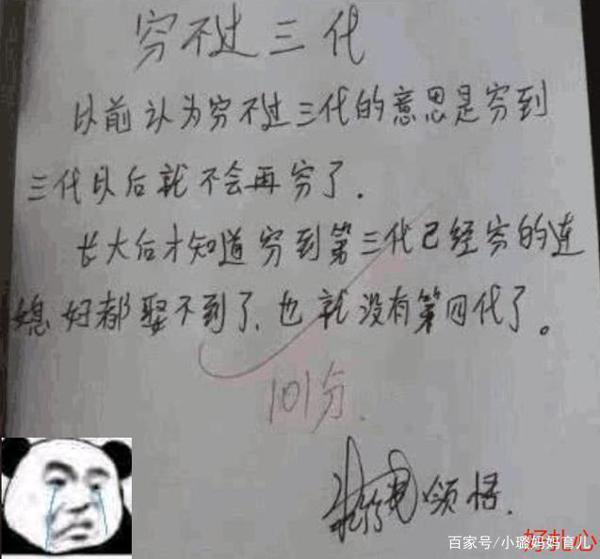 穷不过三代
以前认为穷不过三代的意思是穷到
三代以后就不会再穷了.
长大后才知道穷到第三代已经穷的连
媳妇都娶不到了,也就没有第四代了。
101分.
领悟.
好扎心
百家号/小璐妈妈育儿